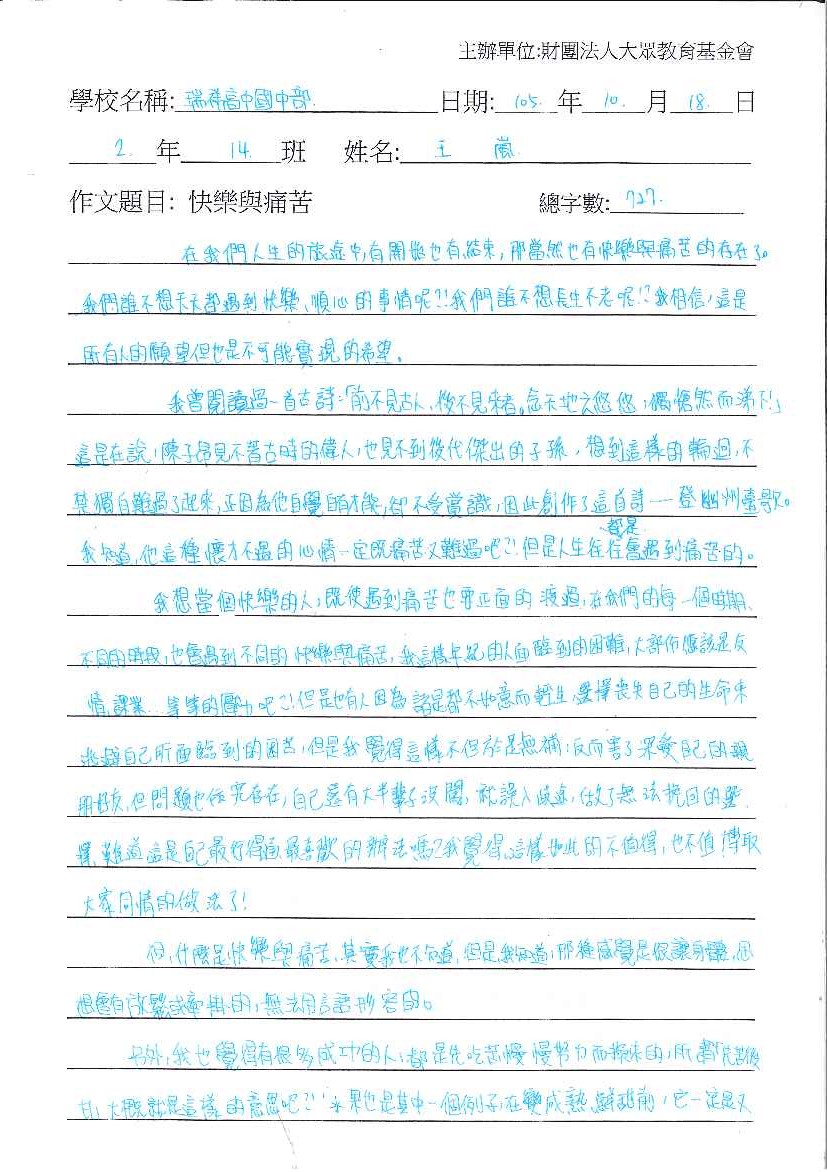 主辦單位:財團法人大眾教育基金會
學校名稱: 瑞祥高中國中部. 日期: 105. 年 10. 月 18. 日
2. 年 14. 班 姓名: 王 嵐
作文題目: 快樂與痛苦 總字數: 727.
在我們人生的旅途中,有開始也有結束,那當然也有快樂與痛苦的存在了。
我們誰不想天天都遇到快樂、順心的事情呢?!我們誰不想長生不老呢!?我相信,這是
所有人的願望但也是不可能實現的希望。
我曾閱讀過一首古詩:「前不見古人,後不見來者。念天地之悠悠,獨愴然而涕下!」
這是在說,陳子昂見不著古時的偉人,也見不到後代傑出的子孫,想到這樣的輪迴,不
禁獨自難過了起來,正因為他自覺自有才能,卻不受賞識,因此創作了這首詩——登幽州臺歌。
我知道,他這種懷才不遇的心情一定既痛苦又難過吧?!但是人生往往都是會遇到痛苦的。
我想當個快樂的人,既使遇到痛苦也要正面的渡過,在我們的每一個時期、
不同的階段,也會遇到不同的快樂與痛苦,我這樣年紀的人面臨到的困難,大部份應該是友
情、課業...等等的壓力吧?!但是也有人因為諸是都不如意而輕生,選擇喪失自己的生命來
逃避自己所面臨到的困苦,但是我覺得這樣不但於是無補,反而害了深愛自己的親
朋好友,但問題也依究存在,自己還有大半輩子沒闖,就誤入歧途,做了無法挽回的選
擇,難道這是自己最 得 最喜歡的辦法嗎?我覺得,這樣如此的不值得,也不值博取
大家同情的做法了!
但,什麼是快樂與痛苦,其實我也不知道,但是,我知道,那種感覺是很讓身體、思
想會有放鬆或牽掛的,無法用言語形容的。
另外,我也覺得有很多成功的人,都是先吃苦慢慢努力而換來的,所謂「先苦後
甘」大概就是這樣的意思吧?!水果也是其中一個例子,在變成熟、鮮甜前,它一定是又